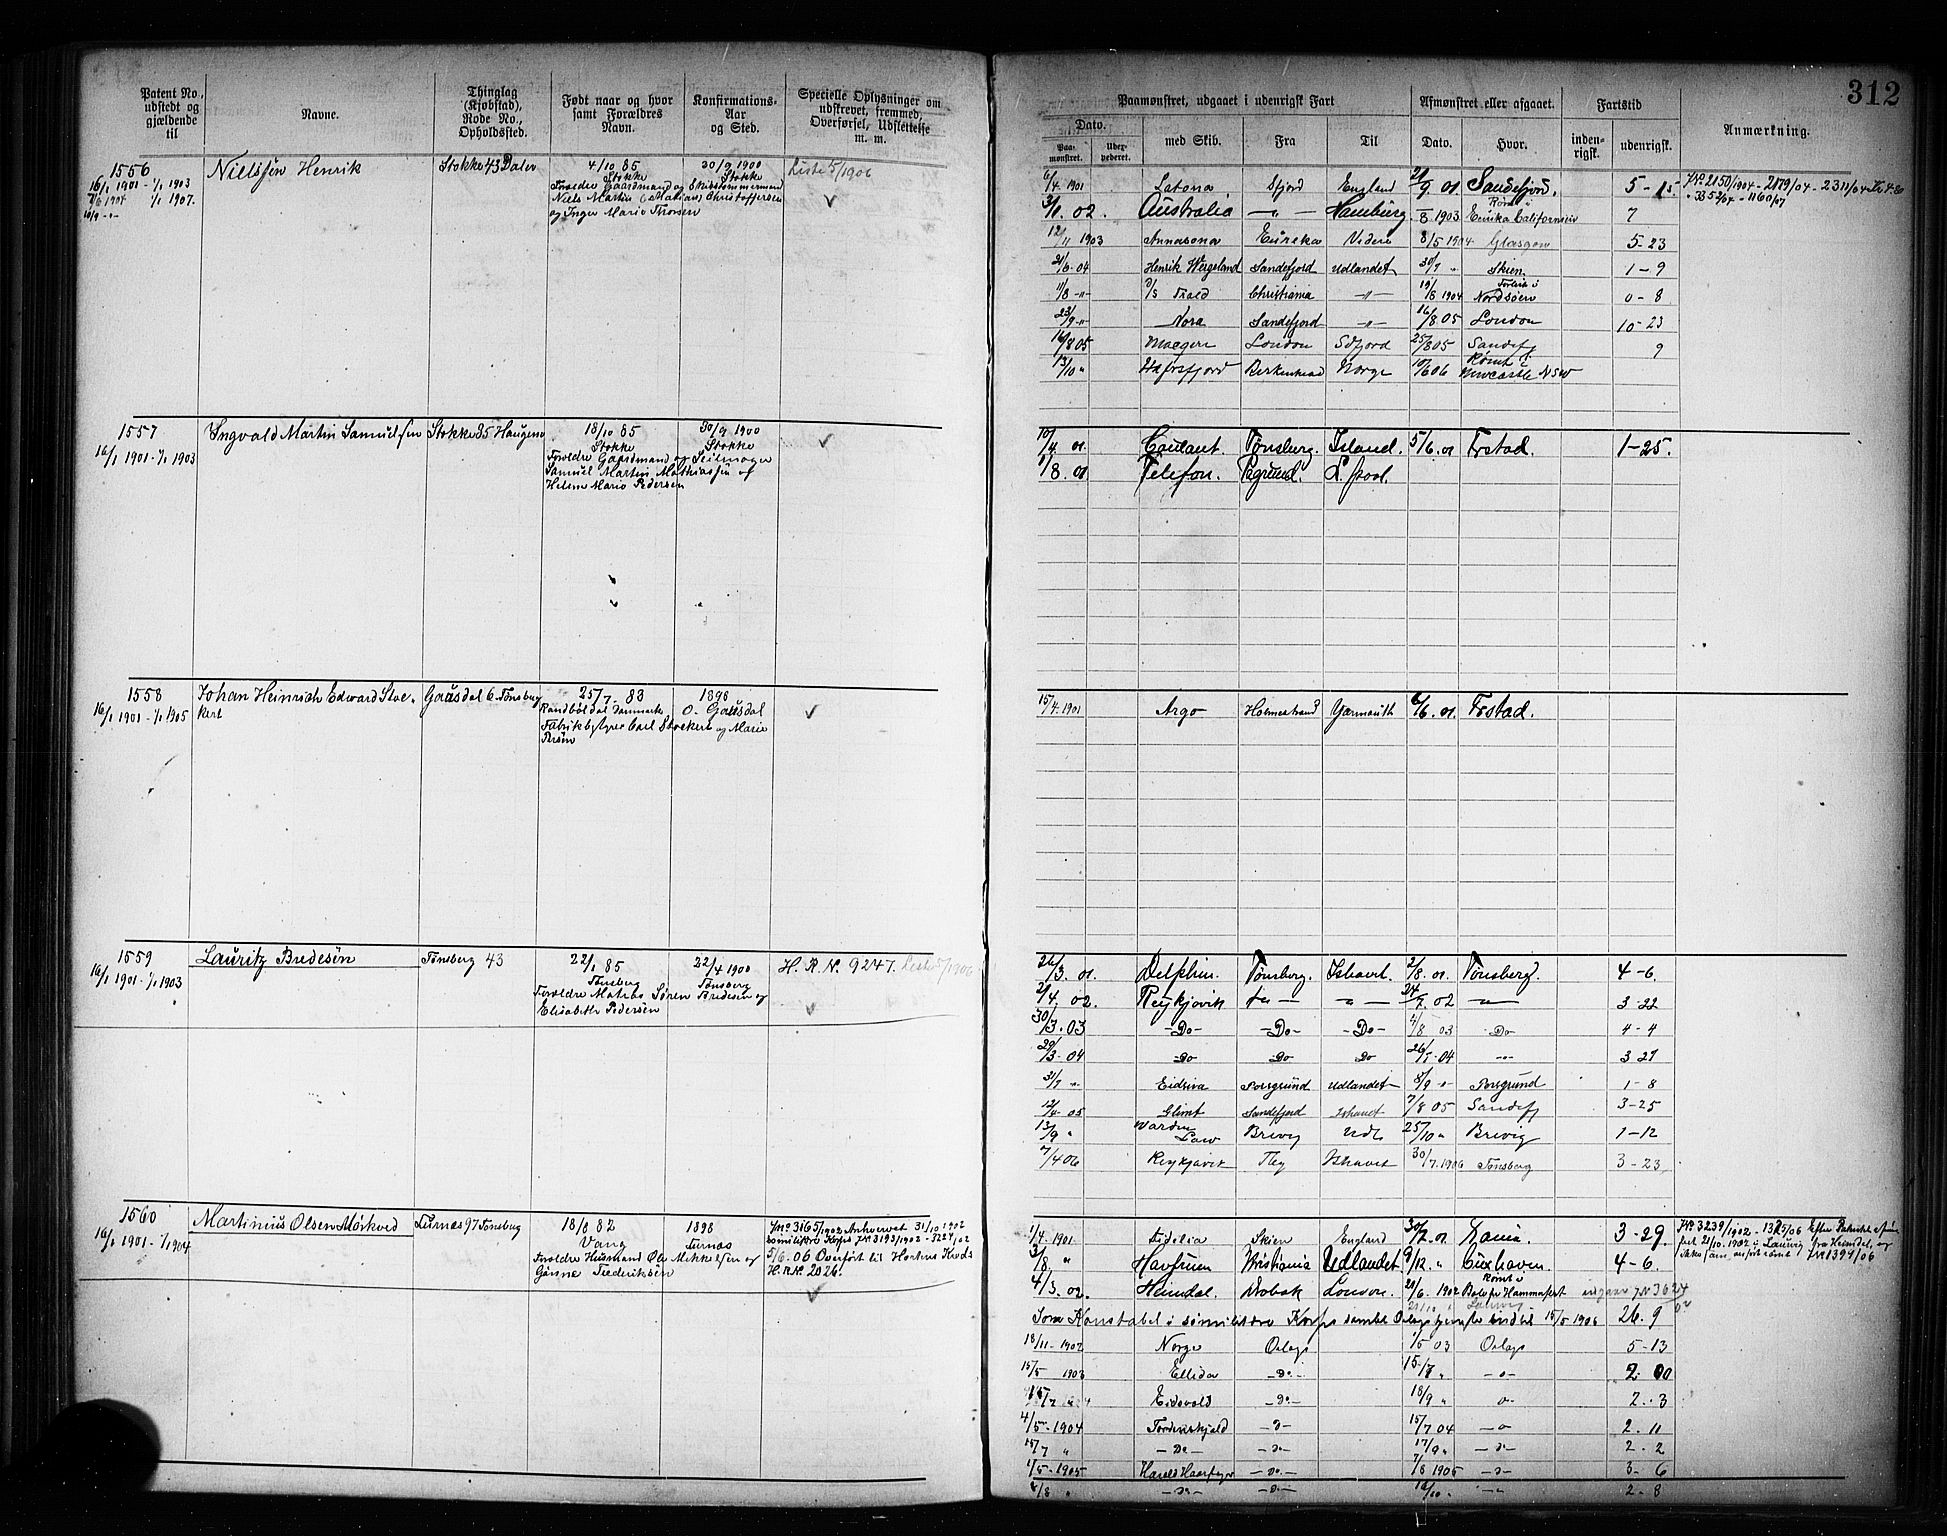 312
Patent No., udstedt og gjældende til
Navne.
Thinglag (Kjøbstad), Rode No., Opholdssted.
Født naar og hvor samt Forældres Navn.
Konfirmations-Aar og Sted.
Specielle Oplysninger om udskrevet, fremmed, Overførsel, Udslettelse m. m.
Paamønstret, udgaaet i udenrigsk Fart
Afmønstret eller afgaaet.
Fartstid
Anmærkning.
Dato.
Paamønstret.
med Skib.
Fra
Til
Dato.
Hvor.
indenrigsk.
udenrigsk.
1556
16/1 1901 - 1/1 1903
1/1 1907.
Nielssen Henrik
Stokke 43 Dalen
4/10 85
Stokke
Forældre Gaardmand og Skibstømmermand
Niels Martin (Mathias) Christoffersen
og Inger Marie Thorsen
30/9 1900
Stokke
Liste 5/1906
6/4 1901 Latona Sfjord England 21/9 01 Sandefjord. 5 - 15
3/1 02. Australia — " — Hamburg. /8 1903 Rømt i Eurika Californien 7
12/11 1903 Annasona Eureka Videre 8/5 1904 Glasgow 5 - 23
21/6 - 04 Henrik Wergeland Sandefjord Udlandet 30/7 " Skien 1 - 9
11/8 - " - D/S Trold Christiania — " — 19/8 1904 Forlist i Nordsøen 0 - 8
23/9 - " - Nora Sandefjord — " — 16/8 05 London 10 - 23
16/8 05 London Sdfjord 25/8 05 Sandefj 9
13/10 " Hafrsfjord Birkenhead Norge 10/6 06 Rømt i Newcastle NSW
1557
16/1 1901 - 1/1 1903
Ingvald Martin Samuelsen
Stokke 35 Haugene
18/10 85
Stokke
Forældre Gaardmand og Seilmager
Samuel Martin Mathiassen og
Helene Marie Pedersen
30/9 1900
Stokke
10/4 01. Tønsberg. Island. 5/6. 01 Frstad. 1 - 25.
1/8. 01 Telefon. Pgrund. L. pool.
1558
16/1 1901 - 1/1 1905
Johan Heinrich Edward Stoe-
kert
Gausdal 6 Tønsberg
25/7 83
Randbøldal Danmark
Fabrikbestyrer Carl Stoekert og Marie
1898
O. Gausdal
15/4 1901 Argo Holmestrand Yarmouth 6/6. 01. Frstad.
1559
16/1 1901 - 1/1 1903
Lauritz Bredesen
Tønsberg 43
22/1 85
Tønsberg
Forældre Matias Søren Bredesen og
Elisabeth Pedersen
22/4 1900
Tønsberg
H. R. N. 9247. Liste 5/1906
26/3. 01. Delphin. Tønsberg. Ishavet. 2/8. 01. Tønsberg. 4 - 6.
2/4. 02. Reykjavik — " — — " — 24/7. 02 — " — 3 - 22
30/3. 03 - Do - - Do - - Do - 4/8 03 Do 4 - 4
29/3 - 04 Do Do Do 26/7 - 04 — " — 3 27
31/7 " Eidsiva Porsgrund Udlandet 8/9 " Porsgrund 1 - 8
12/4 - 05 Glimt Sandefjord Ishavet 7/8 05 Sandefj 3 - 25
13/9 " Warden Law Brevig Udl 25/10 " Brevig 1 - 12
7/4 06 Reykjavik Tbg Ishavet 30/7. 1906 Tønsberg 3 - 23
1560
16/1 1901 - 1/1 1904
Martinius Olsen Mørkved
Furnæs 97 Tønsberg
18/8 82
Vang
Forældre Husmand Ole Mikkelsen og
Gunne Frederiksen
1898
Furnæs
J.No 3165/1902 Anhvervet 31/10 1902
sømilitære Korps J.N 3193/1902 - 3227/02
5/6. 06 Overført til Hortens Kreds
H. R. N. 2026.
1/4. 1901 Fidelia Skien England 30/7. 01. 3 - 29.
3/8. " Havfruen Kristiania Udlandet 9/12. " Cuxhaven. 4 - 6.
4/3. 02. Heimdal. Drobak London. 21/6. 1902 Rømt i Hammerfest
Som Konstabel i sømilitære Korps samlet Orlogstjeneste indtil 15/5 1906 26. 9
18/11 - 1902 Norge Orlogs 1/5 03 Orlogs 5 - 13
15/5 1903 Ellida - Do - 15/7 " — " — 2. 00
Eidsvold - Do - 18/9 " " 2. - 3
4/5 - 1904 Tordenskjold - D - 15/7 04 — " — 2 - 11
15/7 " - Do - - Do - 17/9 " - D - 2 - 2
1/5 - 1905 Harald Haarfager - Do - 7/8 1905 - D - 3 - 6
- Do - - Do - 2 - 8